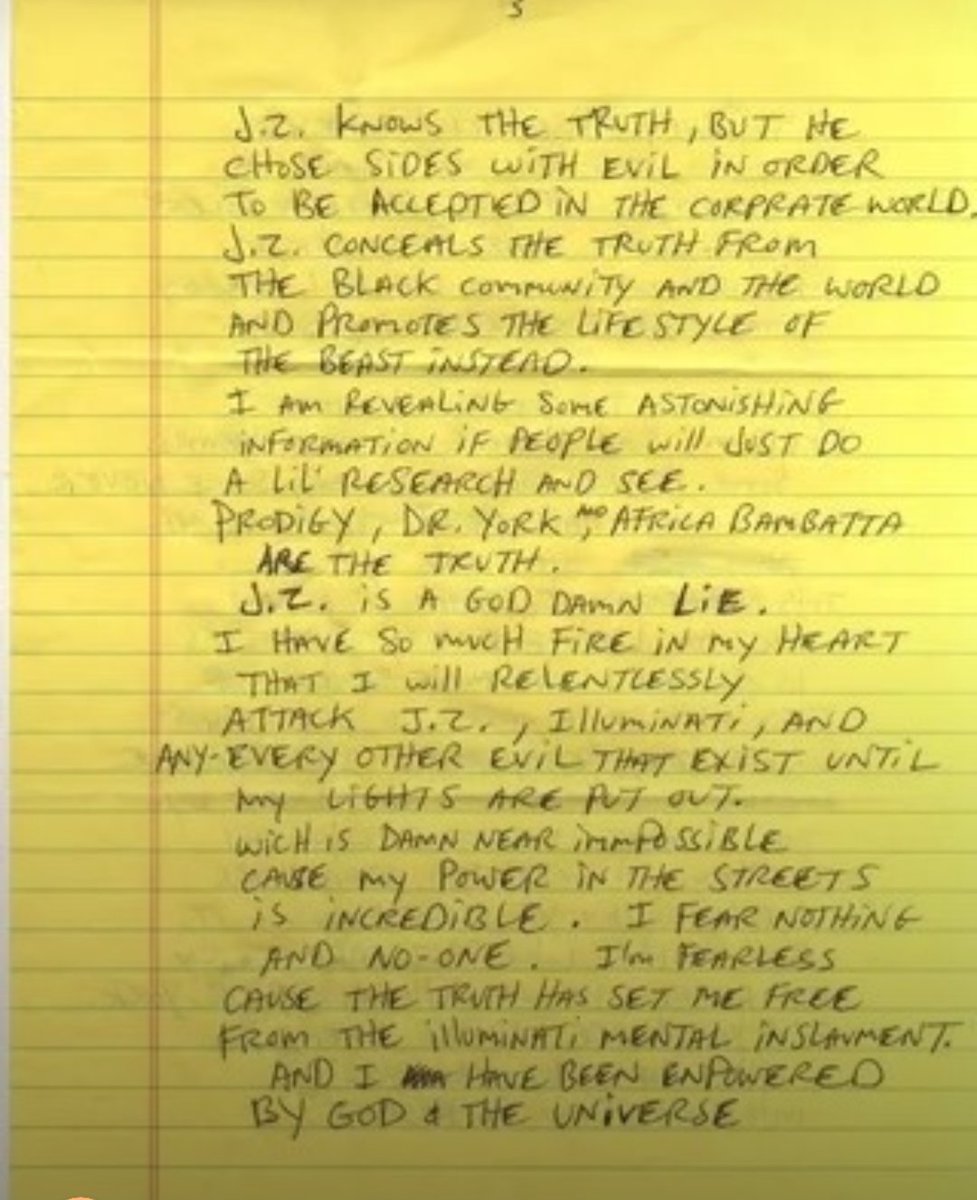 5
J.Z. KNOWS THE TRUTH, BUT HE
CHOSE SIDES WITH EVIL IN ORDER
TO BE ACCEPTED IN THE CORPRATE WORLD.
J.Z. CONCEALS THE TRUTH FROM
THE BLACK COMMUNITY AND THE WORLD
AND PROMOTES THE LIFESTYLE OF
THE BEAST INSTEAD.
I AM REVEALING SOME ASTONISHING
INFORMATION IF PEOPLE WILL JUST DO
A LIL' RESEARCH AND SEE.
PRODIGY, DR. YORK, AND AFRICA BAMBATTA
ARE THE TRUTH.
J.Z. IS A GOD DAMN LIE.
I HAVE SO MUCH FIRE IN MY HEART
THAT I WILL RELENTLESSLY
ATTACK J.Z., ILLUMINATI, AND
ANY-EVERY OTHER EVIL THAT EXIST UNTIL
MY LIGHTS ARE PUT OUT.
WICH IS DAMN NEAR IMMPOSSIBLE
CAUSE MY POWER IN THE STREETS
IS INCREDIBLE. I FEAR NOTHING
AND NO-ONE. I'M FEARLESS
CAUSE THE TRUTH HAS SET ME FREE
FROM THE ILLUMINATI MENTAL INSLAVMENT.
AND I HAVE BEEN ENPOWERED
BY GOD & THE UNIVERSE